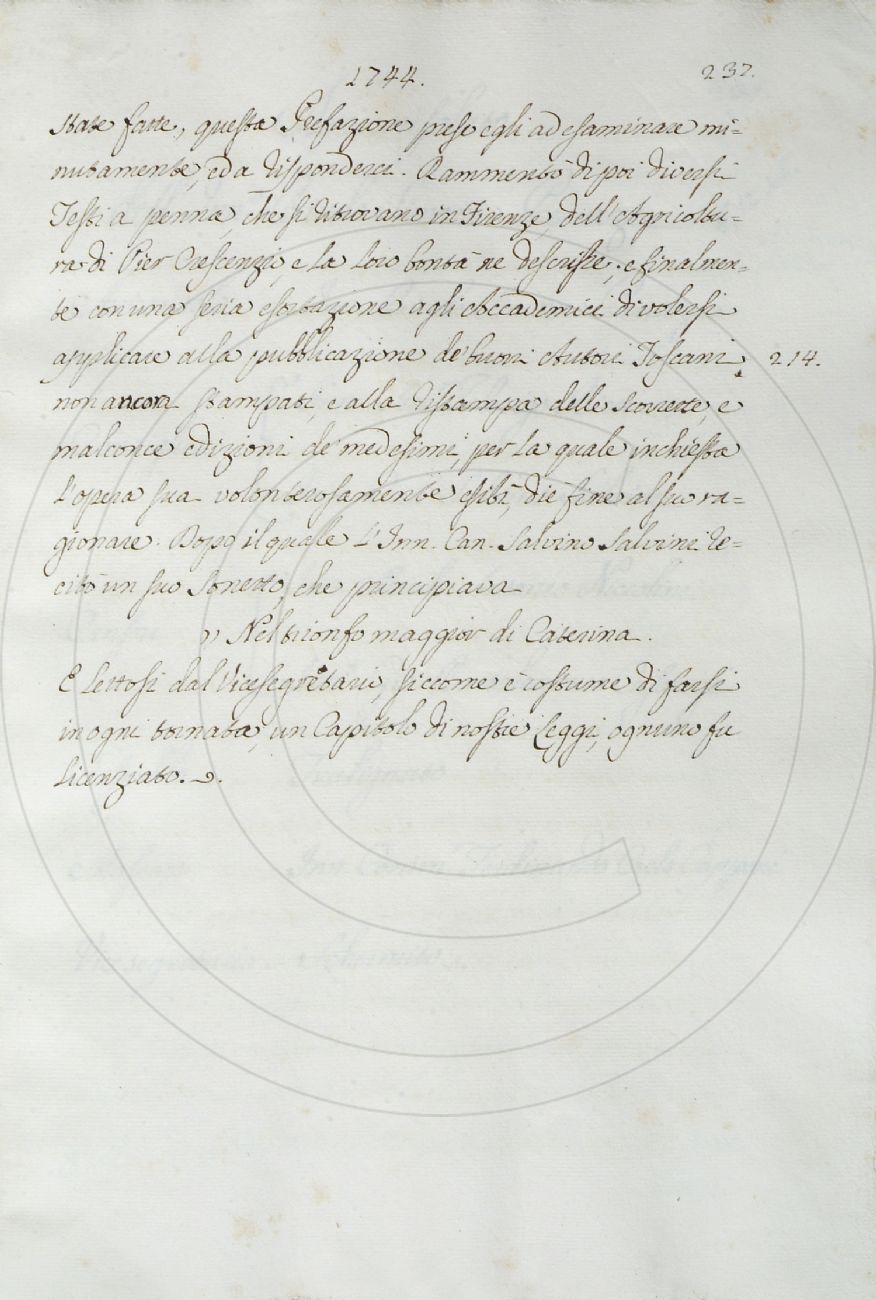 1744.
237.
state fatte, questa Prefazione prese egli ad esaminare mi=
nutamente, ed a rispondervi. Rammentò di poi diversi
Testi a penna, che si ritrovano in Firenze, dell'Agricoltu=
ra di Pier Crescenzi, e la loro bontà ne descrisse; e finalmen=
te con una seria esortazione agli Accademici di volersi
applicare alla pubblicazione de' buoni Autori Toscani
214.
non ancora stampati, e alla ristampa delle scorrette, e
malconce edizioni de' medesimi, per la quale inchiesta
l'opera sua volonterosamente esibì, diè fine al suo ra=
gionare. Dopo il quale l'Inn. Can. Salvino Salvini re=
citò un suo Sonetto, che principiava
" Nel trionfo maggior di Caterina.
E lettosi dal Vicesegretario, siccome è costume di farsi
in ogni tornata, un Capitolo di nostre Leggi, ognuno fu
licenziato.